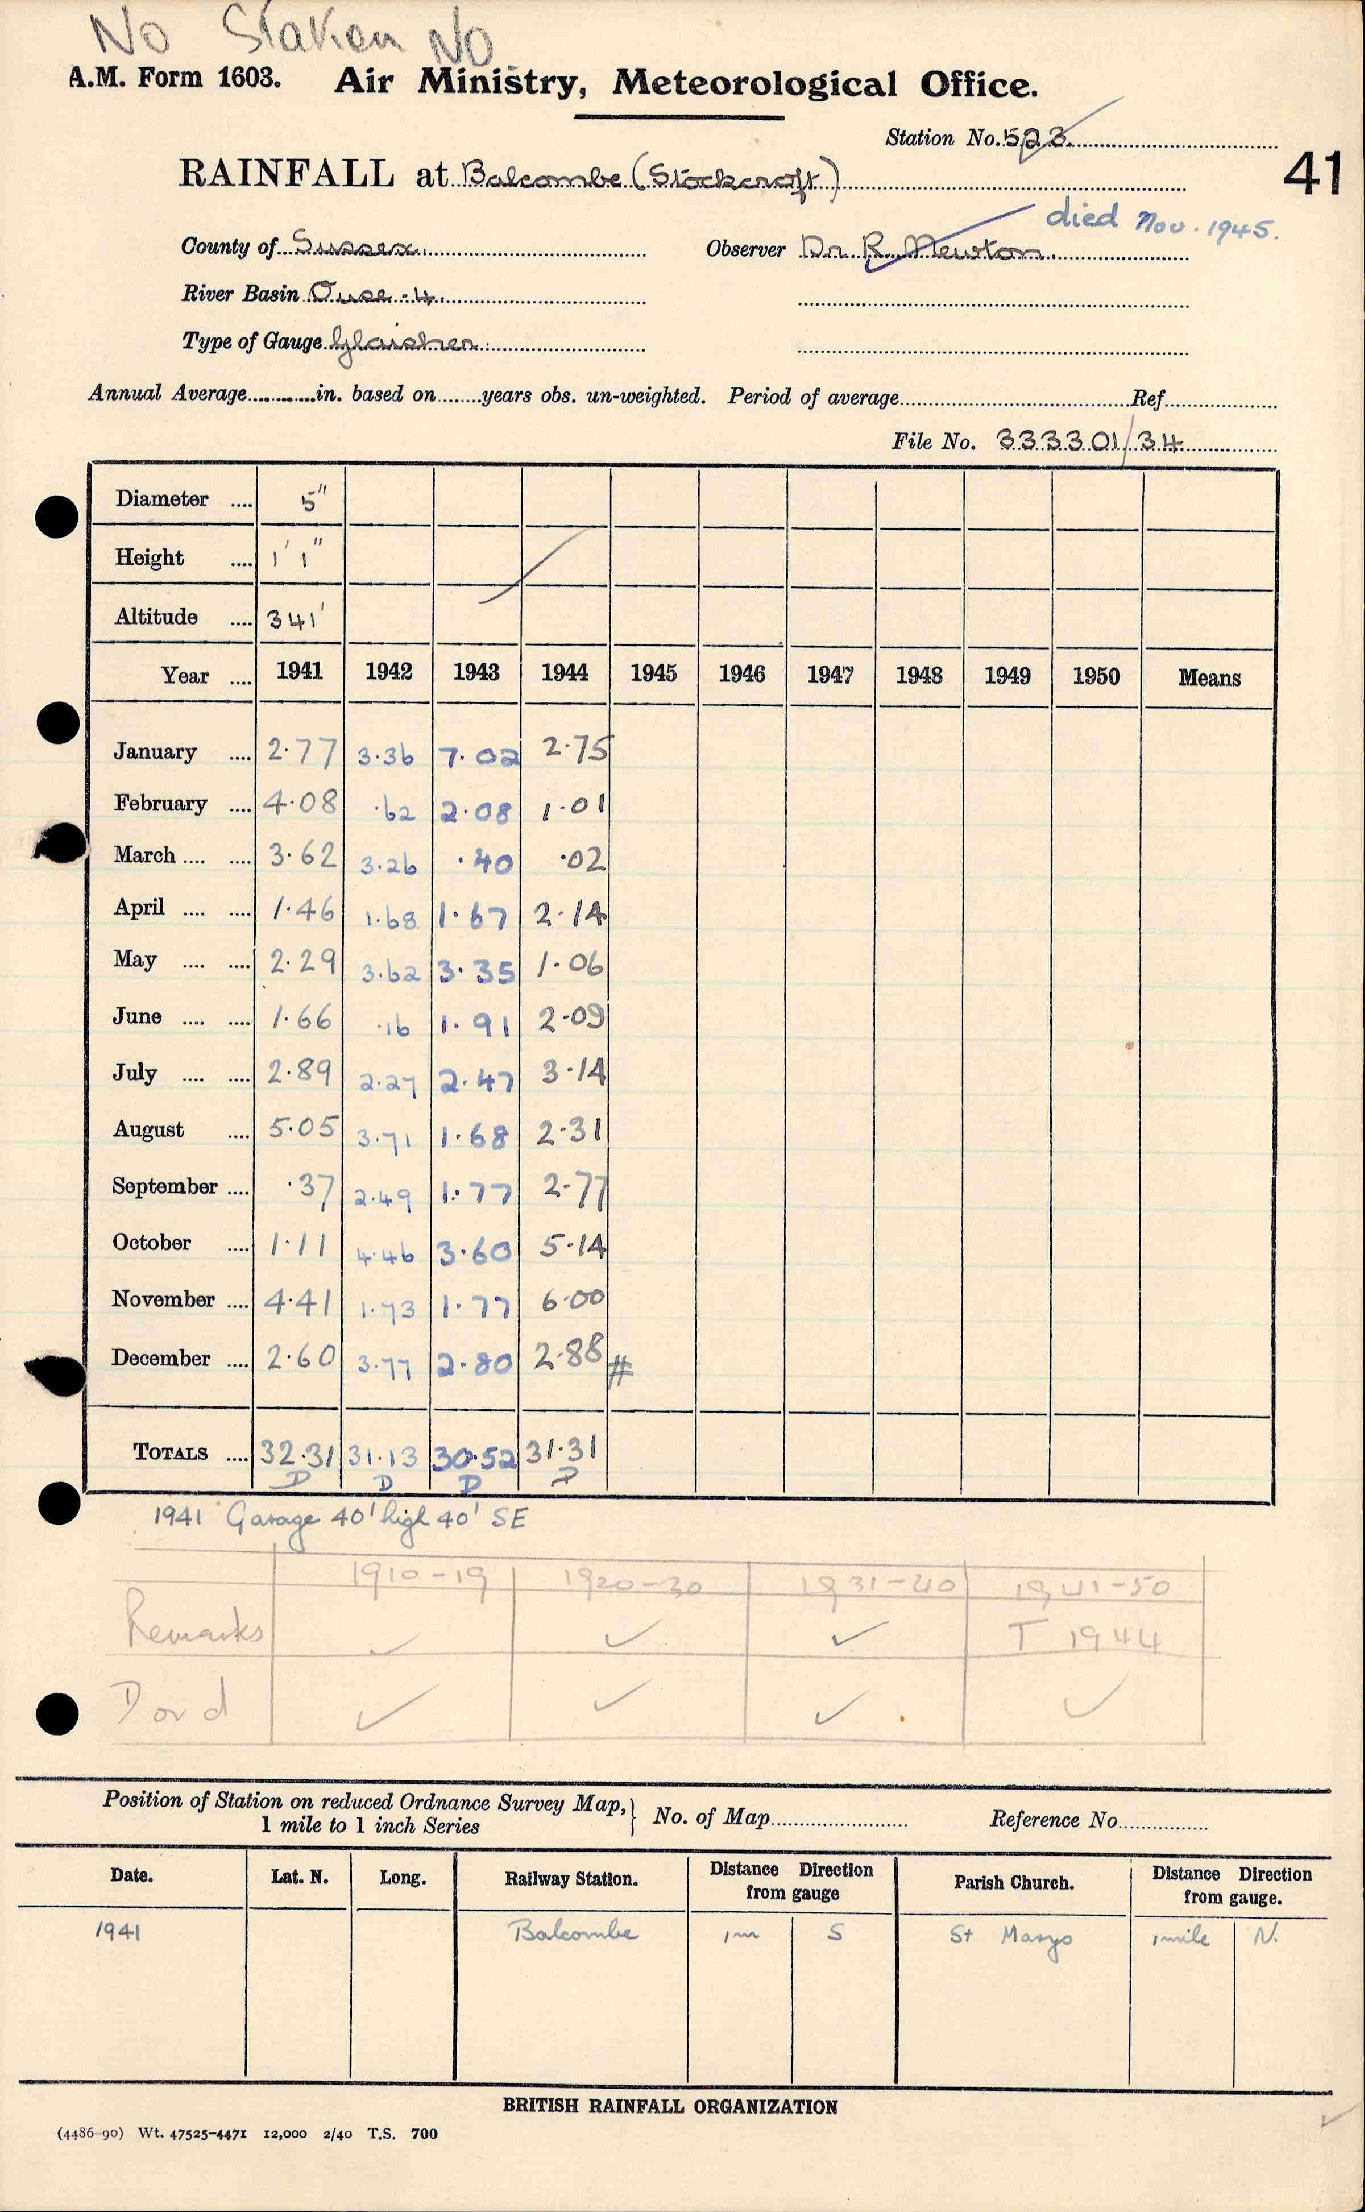 No Station No
A.M. Form 1603. Air Ministry, Meteorological Office.
Station No. 523
41
RAINFALL at Balcombe (Stockcroft)
died Nov. 1945.
County of Sussex Observer Dr. R. Newton
River Basin Ouse . 4
Type of Gauge Glaisher
Annual Average............in. based on........years obs. un-weighted. Period of average............Ref............
File No. 333301/34
Diameter .... 5"
Height .... 1' 1"
Altitude .... 341'
Year .... 1941 1942 1943 1944 1945 1946 1947 1948 1949 1950 Means
January .... 2.77 3.36 7.02 2.75
February .... 4.08 .62 2.08 1.01
March .... .... 3.62 3.26 .40 .02
April .... .... 1.46 1.68 1.67 2.14
May .... .... 2.29 3.62 3.35 1.06
June .... .... 1.66 .16 1.91 2.09
July .... .... 2.89 2.27 2.47 3.14
August .... 5.05 3.71 1.68 2.31
September .... .37 2.49 1.77 2.77
October .... 1.11 4.46 3.60 5.14
November .... 4.41 1.73 1.77 6.00
December .... 2.60 3.77 2.80 2.88 #
TOTALS .... 32.31 31.13 30.52 31.31
D D D D
1941 Garage 40' high 40' SE
1910-19 1920-30 1931-40 1941-50
Remarks ✓ ✓ ✓ T 1944
D or d ✓ ✓ ✓ ✓
Position of Station on reduced Ordnance Survey Map, } No. of Map............ Reference No............
1 mile to 1 inch Series
Date. Lat. N. Long. Railway Station. Distance Direction from gauge Parish Church. Distance Direction from gauge.
1941 Balcombe 1m S St Marys 1 mile N.
BRITISH RAINFALL ORGANIZATION
(4486-90) Wt. 47525-4471 12,000 2/40 T.S. 700